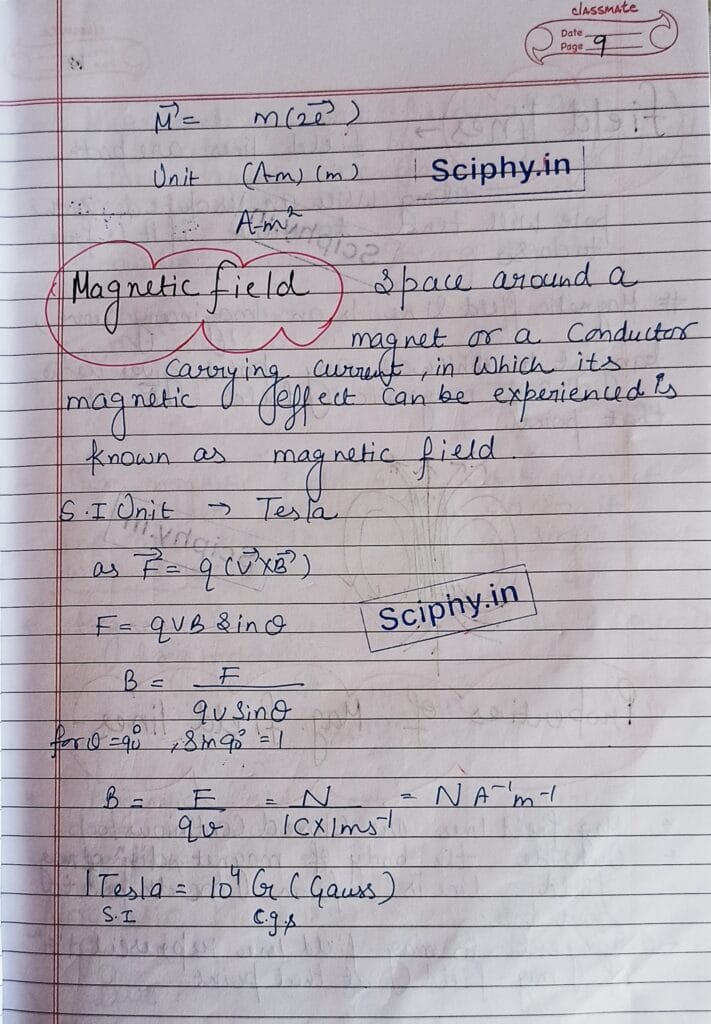 classmate
Date
Page 9
M⃗ = m(2l⃗)
Unit (A-m) (m)
Sciphy.in
A-m²
Magnetic field
Space around a
magnet or a Conductor
Carrying current, in which its
magnetic effect can be experienced is
known as magnetic field.
S.I Unit → Tesla
as F⃗ = q (V⃗×B⃗)
F = qVB Sinθ
Sciphy.in
B = F / qv Sinθ
for θ = 90°, Sin 90° = 1
B = F / qv = N / 1C×1ms⁻¹ = N A⁻¹m⁻¹
1 Tesla = 10⁴ G (Gauss)
S.I C.g.s